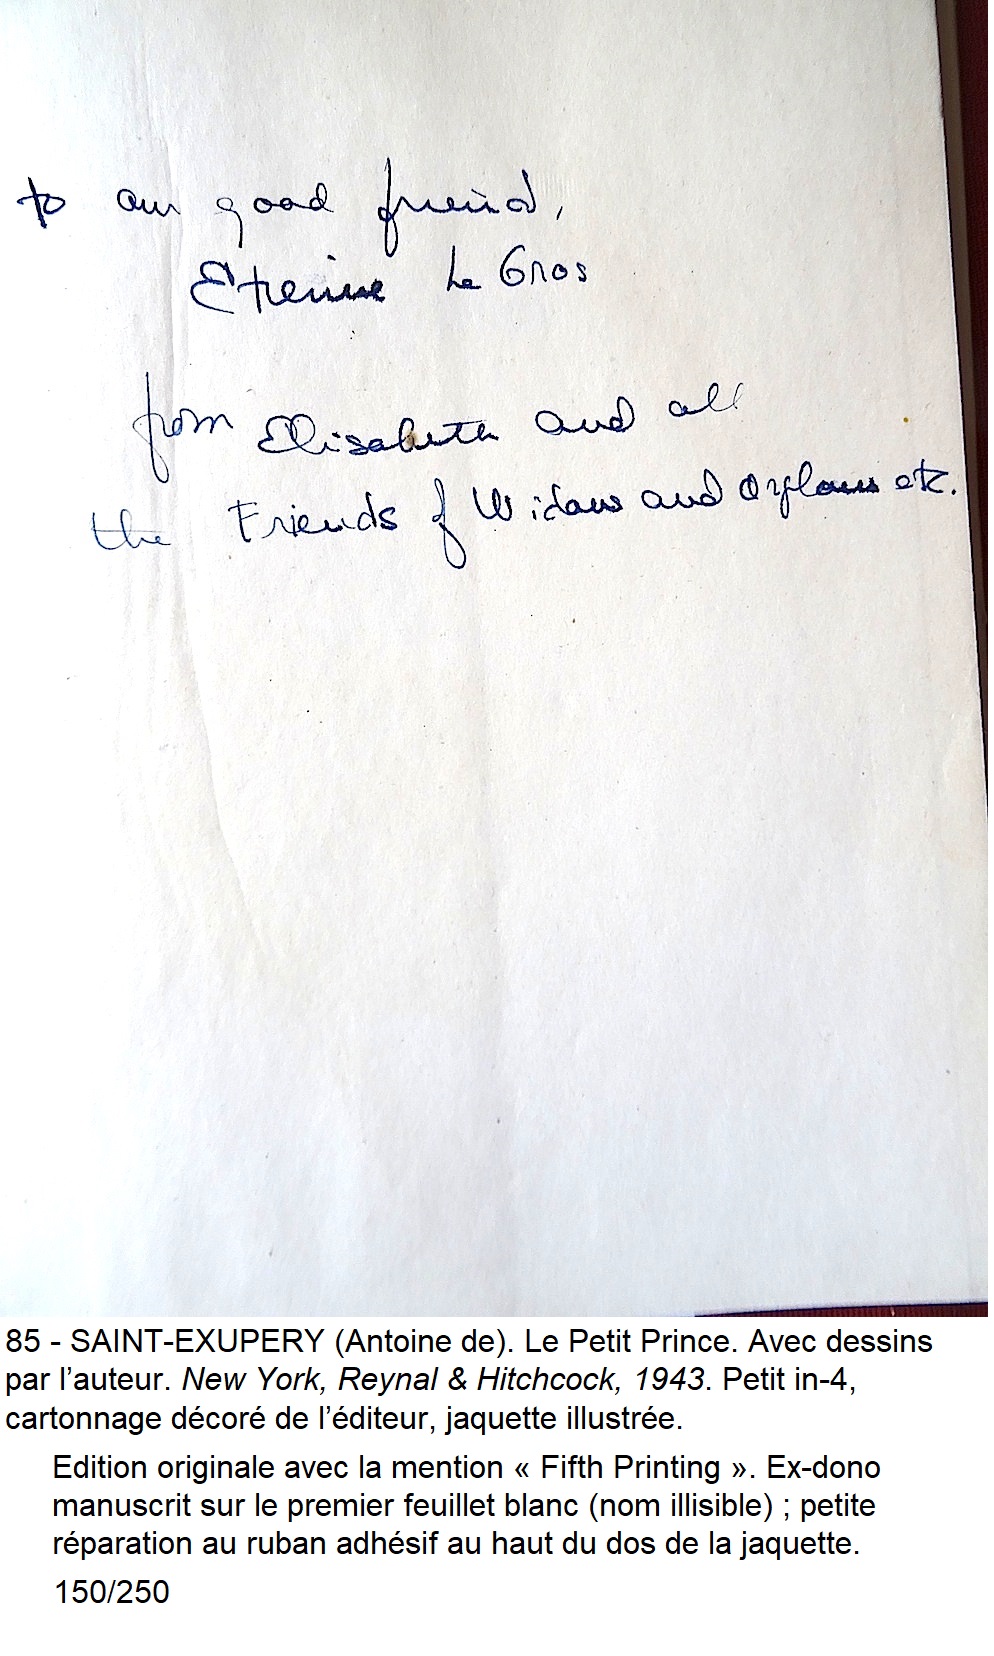 to our good friend,
Etienne Le Gros
from Elisabeth and all
the Friends of Widows and Orphans etc.
85 - SAINT-EXUPERY (Antoine de). Le Petit Prince. Avec dessins
par l’auteur. New York, Reynal & Hitchcock, 1943. Petit in-4,
cartonnage décoré de l’éditeur, jaquette illustrée.
Edition originale avec la mention « Fifth Printing ». Ex-dono
manuscrit sur le premier feuillet blanc (nom illisible) ; petite
réparation au ruban adhésif au haut du dos de la jaquette.
150/250